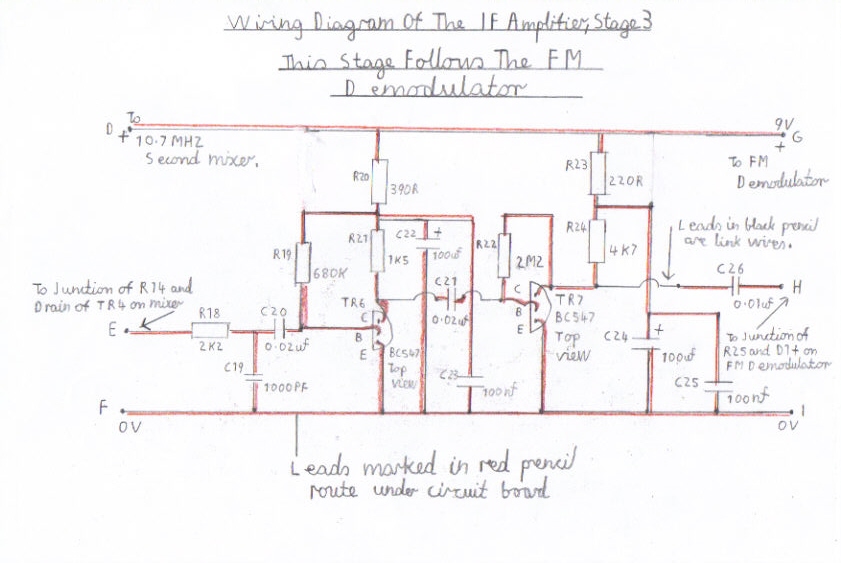 Wiring Diagram Of The IF Amplifier, Stage 3
This Stage Follows The FM
Demodulator
To
D +
10.7 MHZ
Second mixer.
9V
+ G
To FM
Demodulator
R20
390R
R23
220R
R19
680K
R21
1K5
C22 +
100uf
R22
2M2
R24
4K7
Leads in black pencil
are link wires.
To Junction of R14 and
Drain of TR4 on mixer
E
R18
2K2
C20
0.02uf
C19
1000PF
TR6
C
B
E
BC547
Top
view
C21
0.02uf
C23
100nf
C
B
E
TR7
BC547
Top
view
C26
0.01uf
H
C24 +
100uf
C25
100nf
To Junction of
R25 and D1+ on
FM Demodulator
F
0V
I
0V
Leads marked in red pencil
route under circuit board